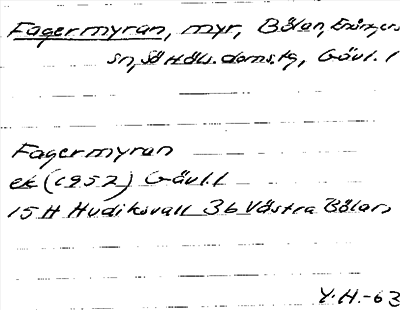 Fagermyran, myr, Bölan, Enångers
sn, Sö Häls. doms.tg, Gävl. l
Fagermyran
ek (1952) Gävl. l
15 H Hudiksvall 3b Västra Bölan
Y. H. -63